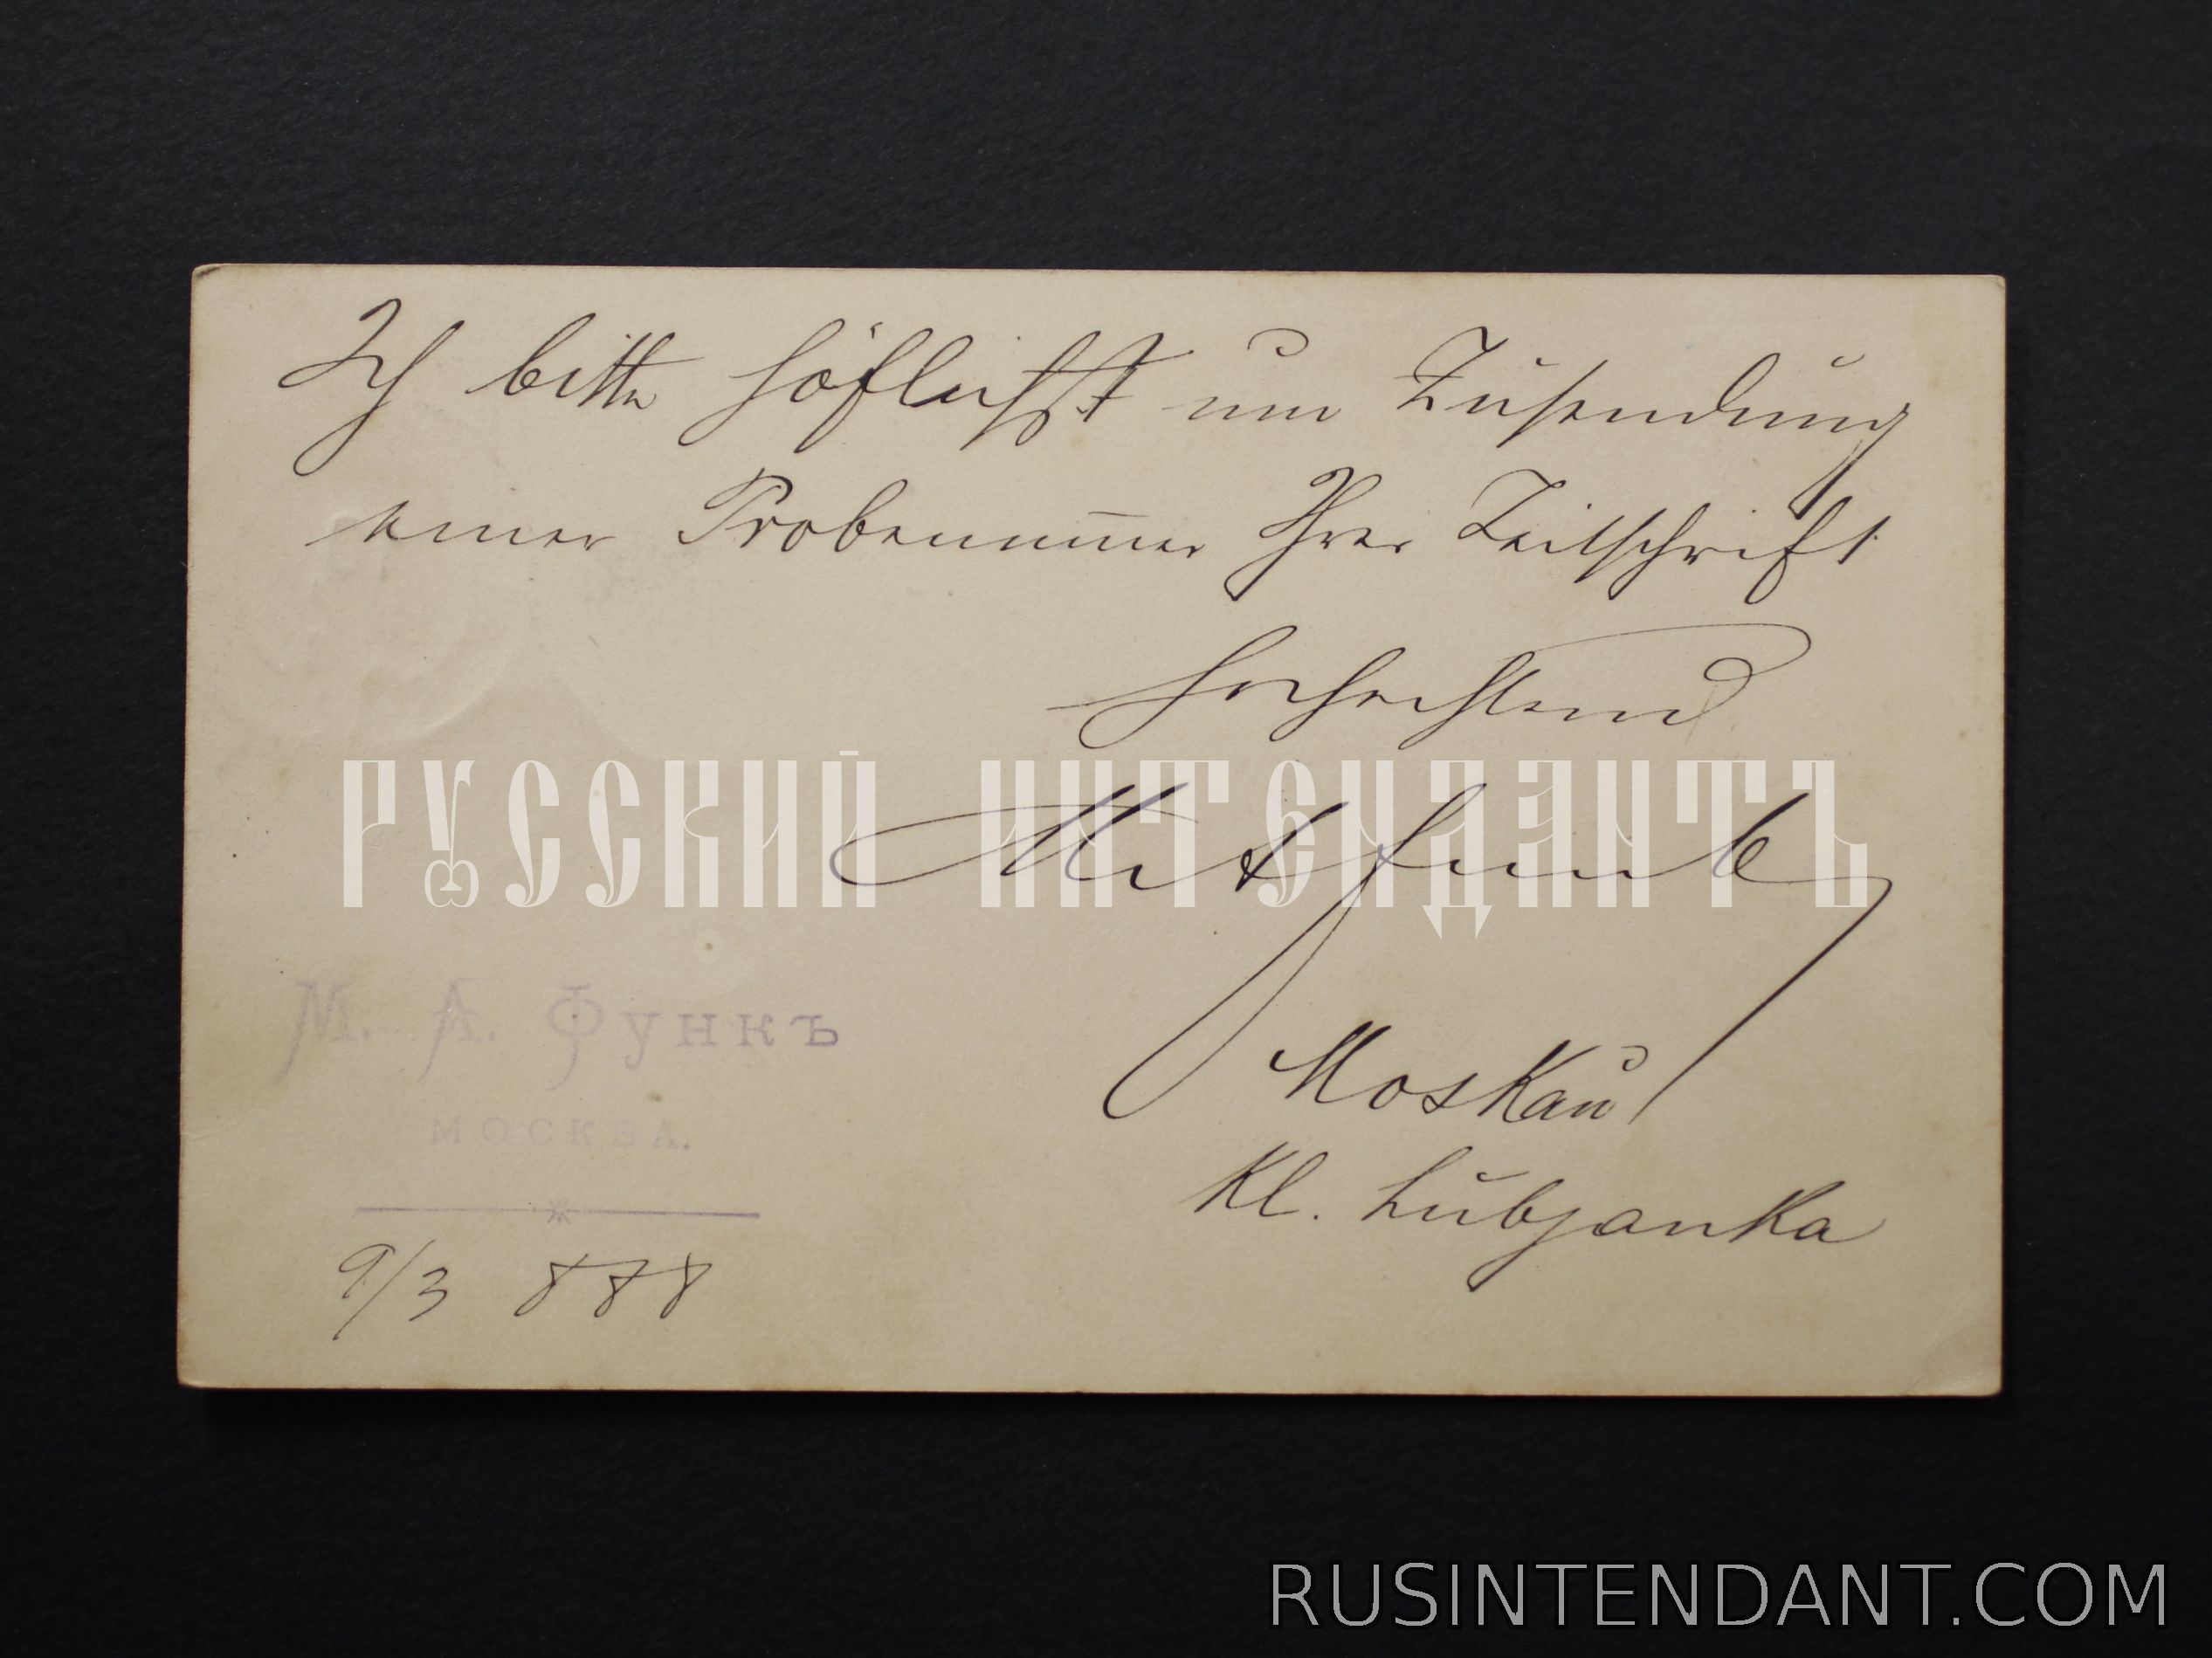 Ich bitte höflichst um Zusendung
einer Probenum̅er Ihrer Zeitschrift
Hochachtend
РУССКИЙ ИНТЕНДАНТЪ
Funk
М. А. Функъ
МОСКВА.
Moskau
Kl. Lubjanka
9/3 888
RUSINTENDANT.COM